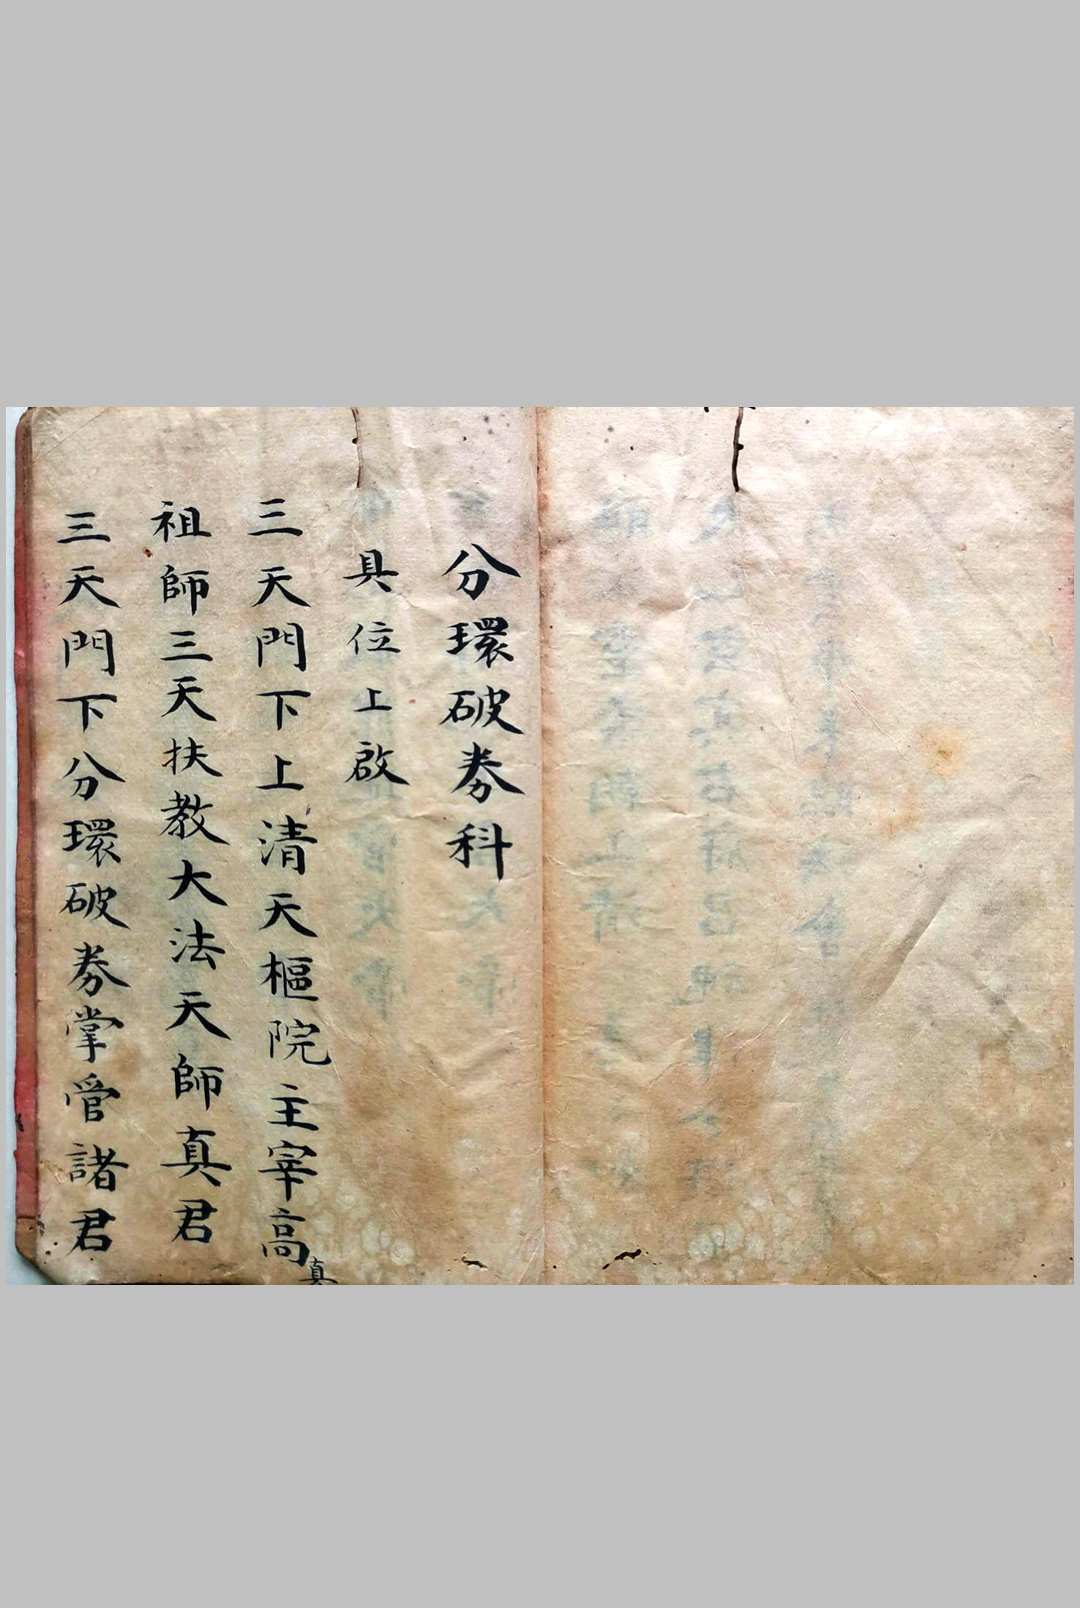 分環破券科
具位上啟
三天門下上清天樞院主宰高真
祖師三天扶教大法天師真君
三天門下分環破券掌管諸君